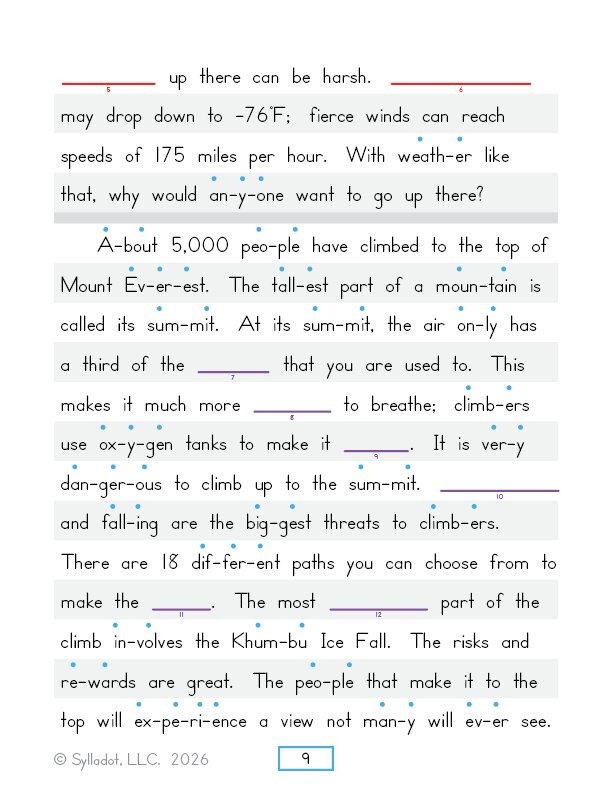 _____ up there can be harsh. _____
5 6
may drop down to -76°F; fierce winds can reach
speeds of 175 miles per hour. With weath-er like
that, why would an-y-one want to go up there?
A-bout 5,000 peo-ple have climbed to the top of
Mount Ev-er-est. The tall-est part of a moun-tain is
called its sum-mit. At its sum-mit, the air on-ly has
a third of the _____ that you are used to. This
7
makes it much more _____ to breathe; climb-ers
8
use ox-y-gen tanks to make it _____. It is ver-y
9
dan-ger-ous to climb up to the sum-mit. _____
10
and fall-ing are the big-gest threats to climb-ers.
There are 18 dif-fer-ent paths you can choose from to
make the _____. The most _____ part of the
11 12
climb in-volves the Khum-bu Ice Fall. The risks and
re-wards are great. The peo-ple that make it to the
top will ex-pe-ri-ence a view not man-y will ev-er see.
© Sylladot, LLC. 2026 9